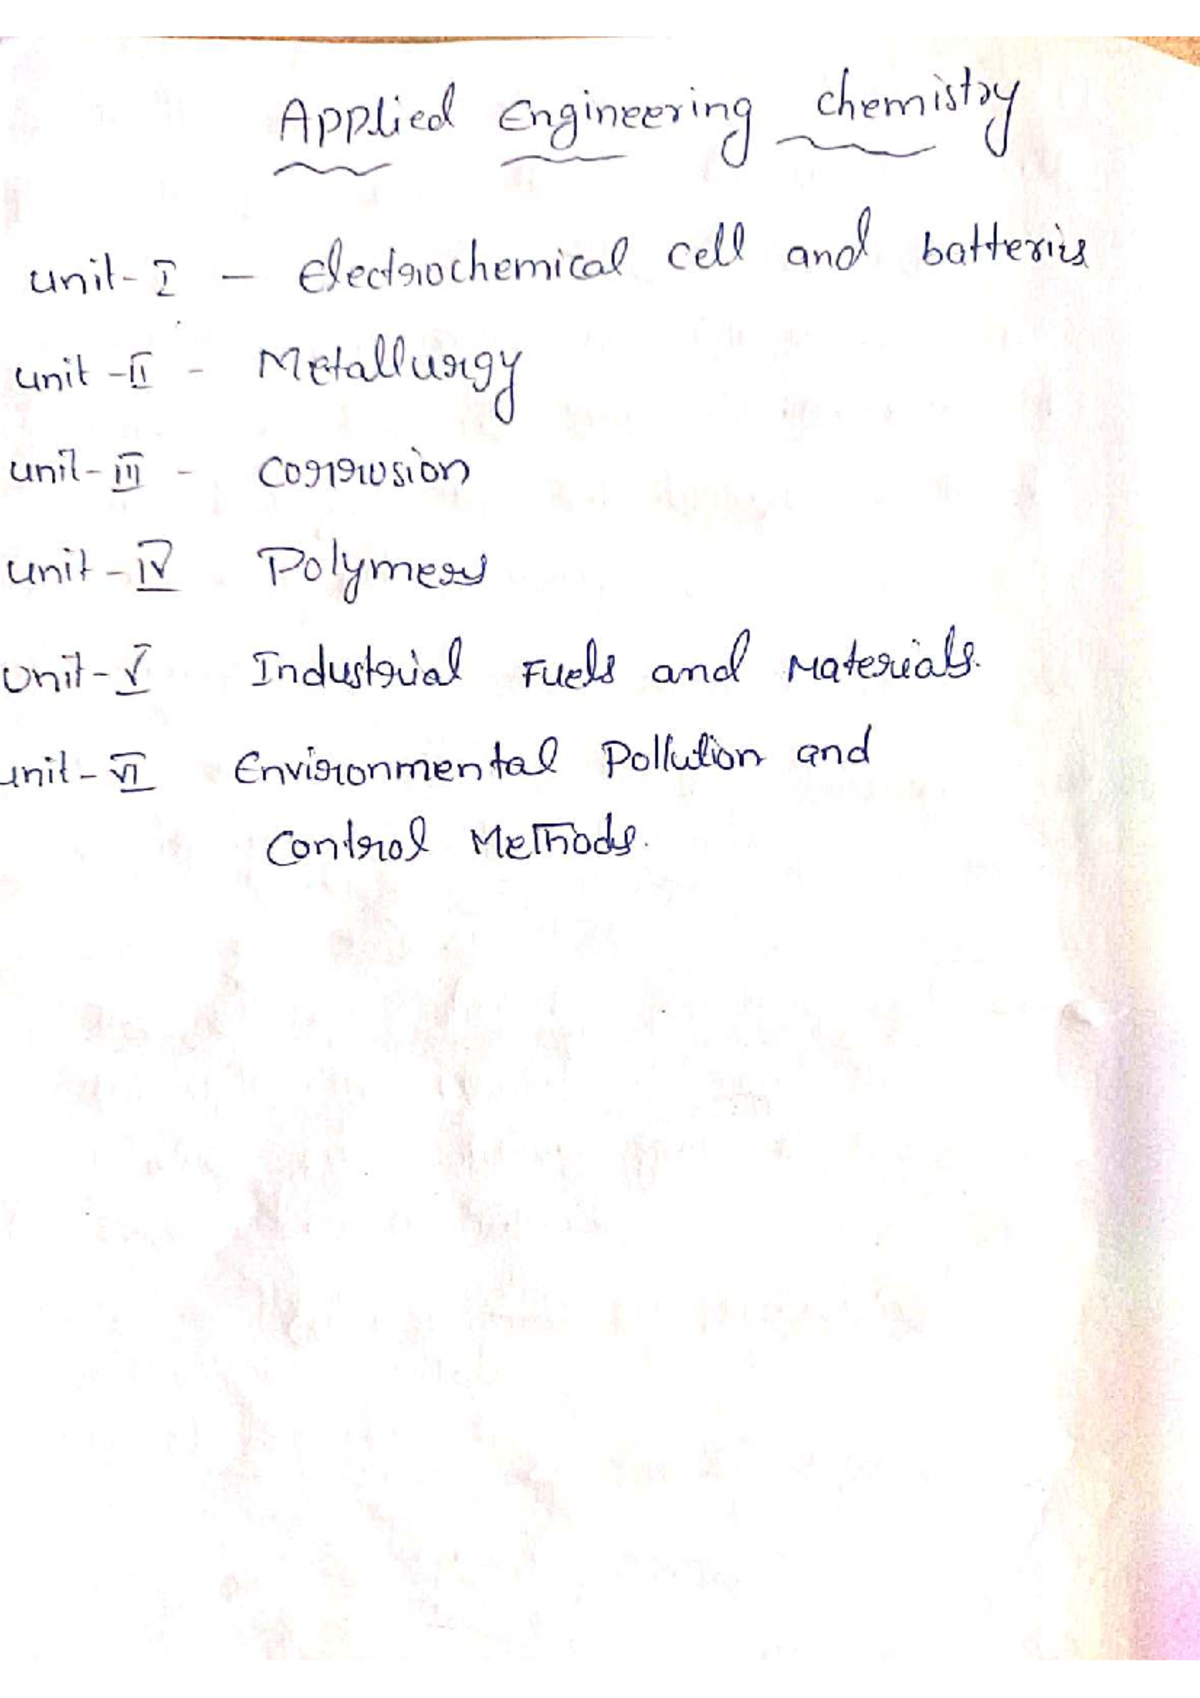 Applied Engineering chemistry
unit-I - Electrochemical cell and batteries
unit-II - Metallurgy
unit-III - Corrosion
unit-IV Polymers
unit-V Industrial Fuels and Materials.
unit-VI Environmental Pollution and
Control Methods.